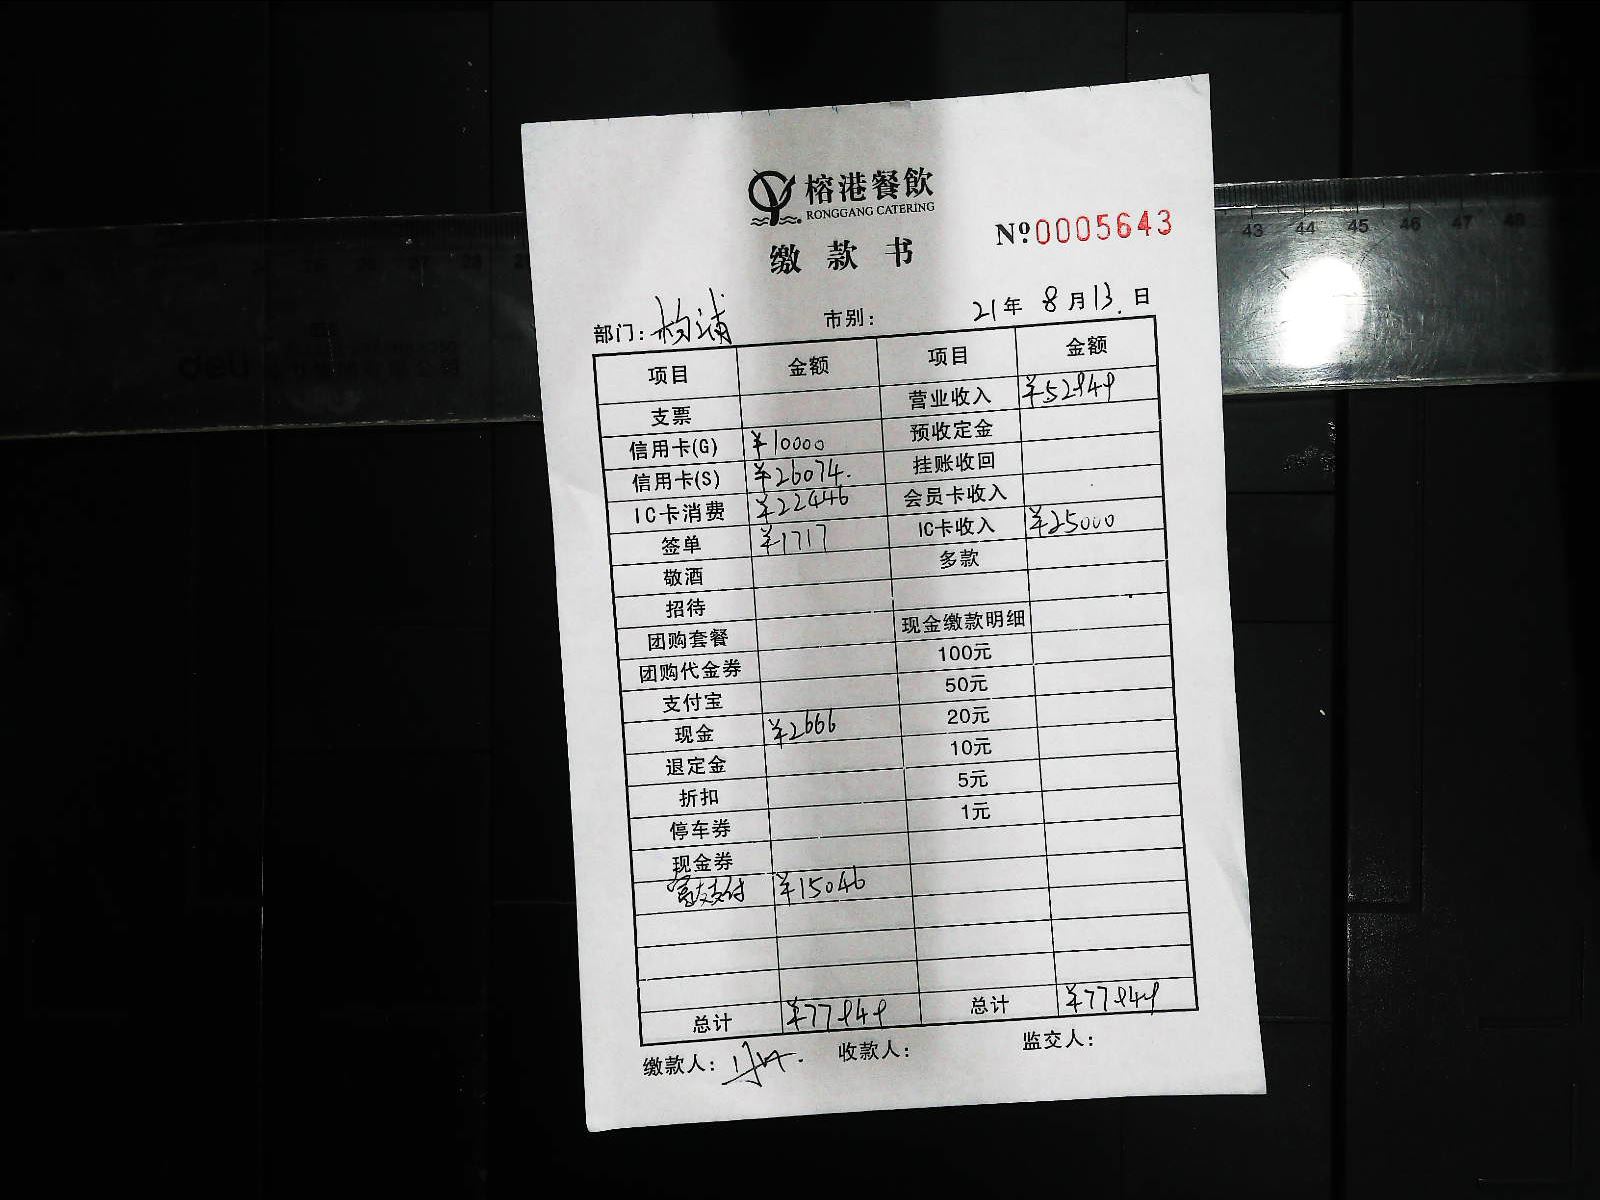 榕港餐飲
RONGGANG CATERING
缴款书
Nº0005643
部门: 杨浦 市别: 21年 8月13日
项目 金额 项目 金额
支票 营业收入 ¥52949
信用卡(G) ¥10000 预收定金
信用卡(S) ¥26074. 挂账收回
IC卡消费 ¥22446 会员卡收入
签单 ¥1717 IC卡收入 ¥25000
敬酒 多款
招待
团购套餐 现金缴款明细
团购代金券 100元
支付宝 50元
现金 ¥2666 20元
退定金 10元
折扣 5元
停车券 1元
现金券
富友支付 ¥15046
总计 ¥77949 总计 ¥77949
缴款人: 收款人: 监交人:
deli
43 44 45 46 47 48